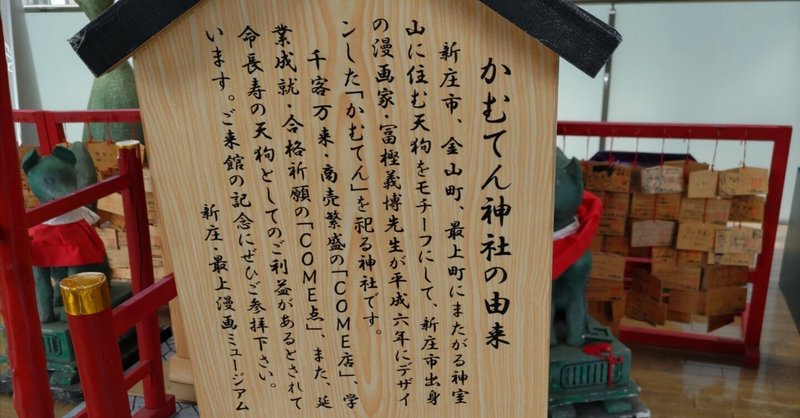 かむてん神社の由来
新庄市、金山町、最上町にまたがる神室
山に住む天狗をモチーフにして、新庄市出身
の漫画家・冨樫義博先生が平成六年にデザイ
ンした「かむてん」を祀る神社です。
千客万来・商売繁盛の「COME店」、学
業成就・合格祈願の「COME点」、また、延
命長寿の天狗としてのご利益があるとされて
います。ご来館の記念にぜひご参拝下さい。
新庄・最上漫画ミュージアム